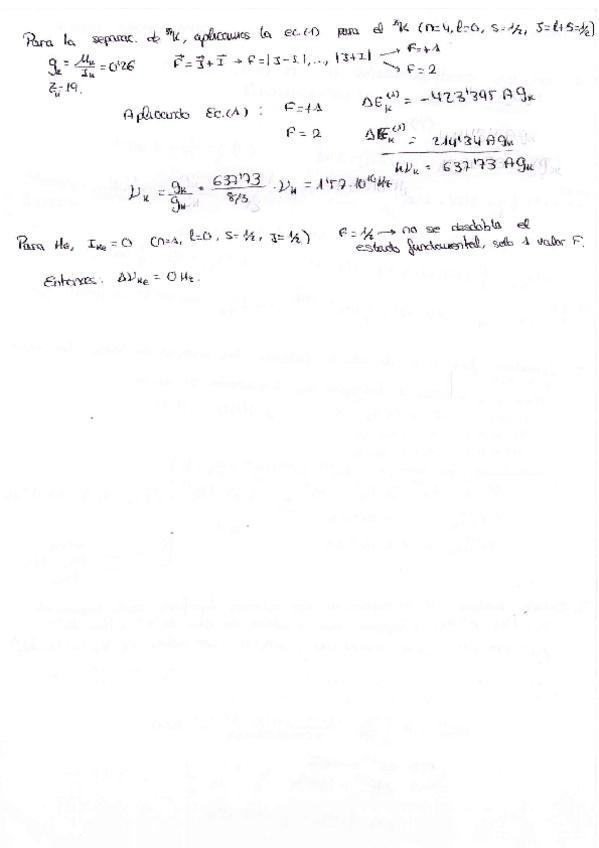 Para la separac. de ³⁹K, aplicamos la ec.(1) para el ³⁹K (n=4, l=0, s=1/2, J=l+s=1/2)
g_K = μ_K/I_K = 0'26   F⃗ = J⃗ + I⃗ → F = |J-I|, ..., |J+I| → F=+1
Z_K=19.   → F=2
Aplicando Ec.(1): F=+1   ΔE_K^(1) = -423'395 A g_K
F=2   ΔE_K^(2) = 214'34 A g_K
hν_K = 637'73 A g_K
ν_K = g_K/g_H · 637'73/(8/3) · ν_H = 1'57·10¹⁰ Hz
Para He, I_He = 0 (n=1, l=0, s=1/2, J=1/2)   F=1/2 → no se desdobla el
estado fundamental, solo 1 valor F.
Entonces: Δν_He = 0 Hz.